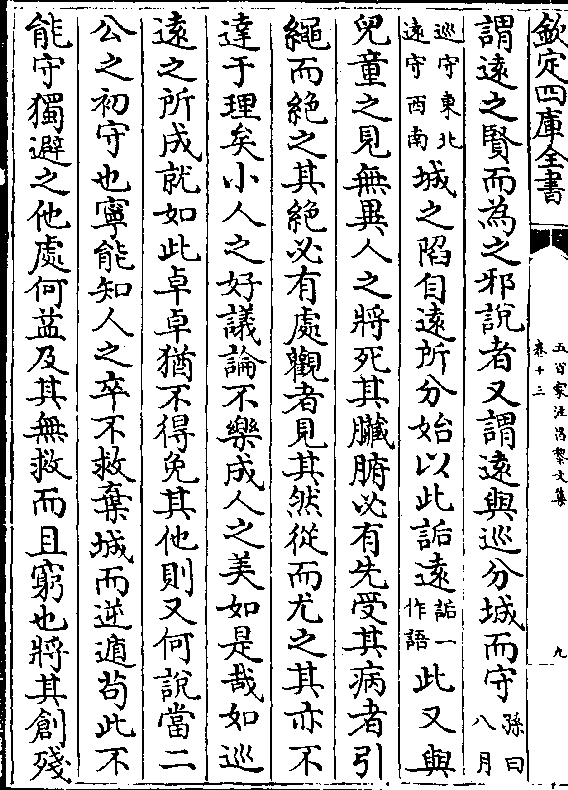 欽定四庫全書
五百家注昌黎文集
卷十三
九
謂遠之賢而為之邪說者又謂遠與巡分城而守孫曰八月
巡守東北遠守西南城之陷自遠所分始以此詬遠詬一作語此又與
兒童之見無異人之將死其臟腑必有先受其病者引
繩而絶之其絶必有處觀者見其然從而尤之其亦不
達于理矣小人之好議論不樂成人之美如是哉如巡
遠之所成就如此卓卓猶不得免其他則又何說當二
公之初守也寧能知人之卒不救棄城而逆遁苟此不
能守獨避之他處何益及其無救而且窮也將其創殘